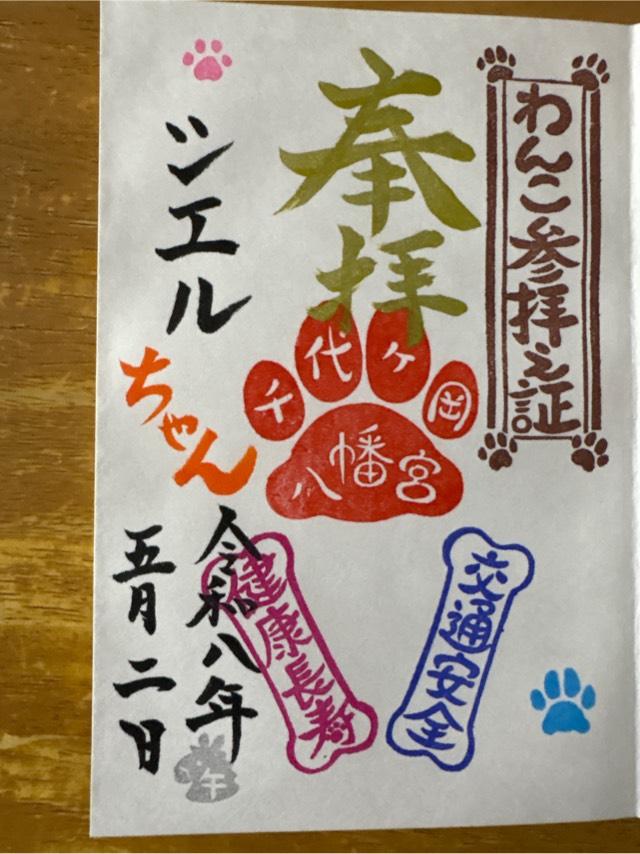 わんこ参拝之証
奉拝
千代ヶ岡
八幡宮
交通安全
健康長寿
シエル
ちゃん
令和八年
五月二日
午